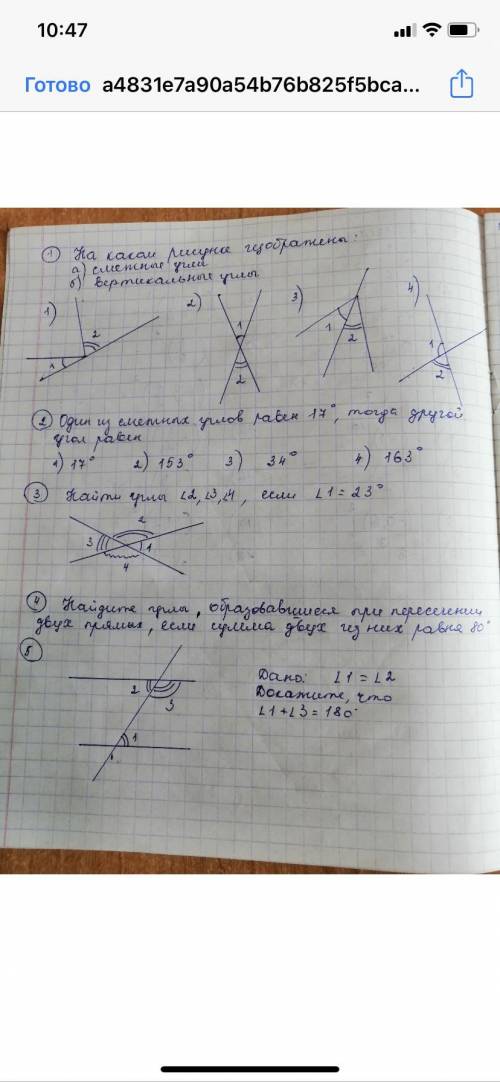 10:47
Готово a4831e7a90a54b76b825f5bca...
1 На каком рисунке изображены:
а) смежные углы
б) вертикальные углы
1) 2) 3) 4)
2 1 1 2 1 2 1 2
2 Один из смежных углов равен 17°, тогда другой
угол равен
1) 17° 2) 153° 3) 34° 4) 163°
3 Найти углы ∠2,∠3,∠4, если ∠1 = 23°
2
3 1
4
4 Найдите углы, образовавшиеся при пересечении
двух прямых, если сумма двух из них равна 80°
5
2 3 1
Дано: ∠1 = ∠2
Докажите, что
∠1+∠3=180°